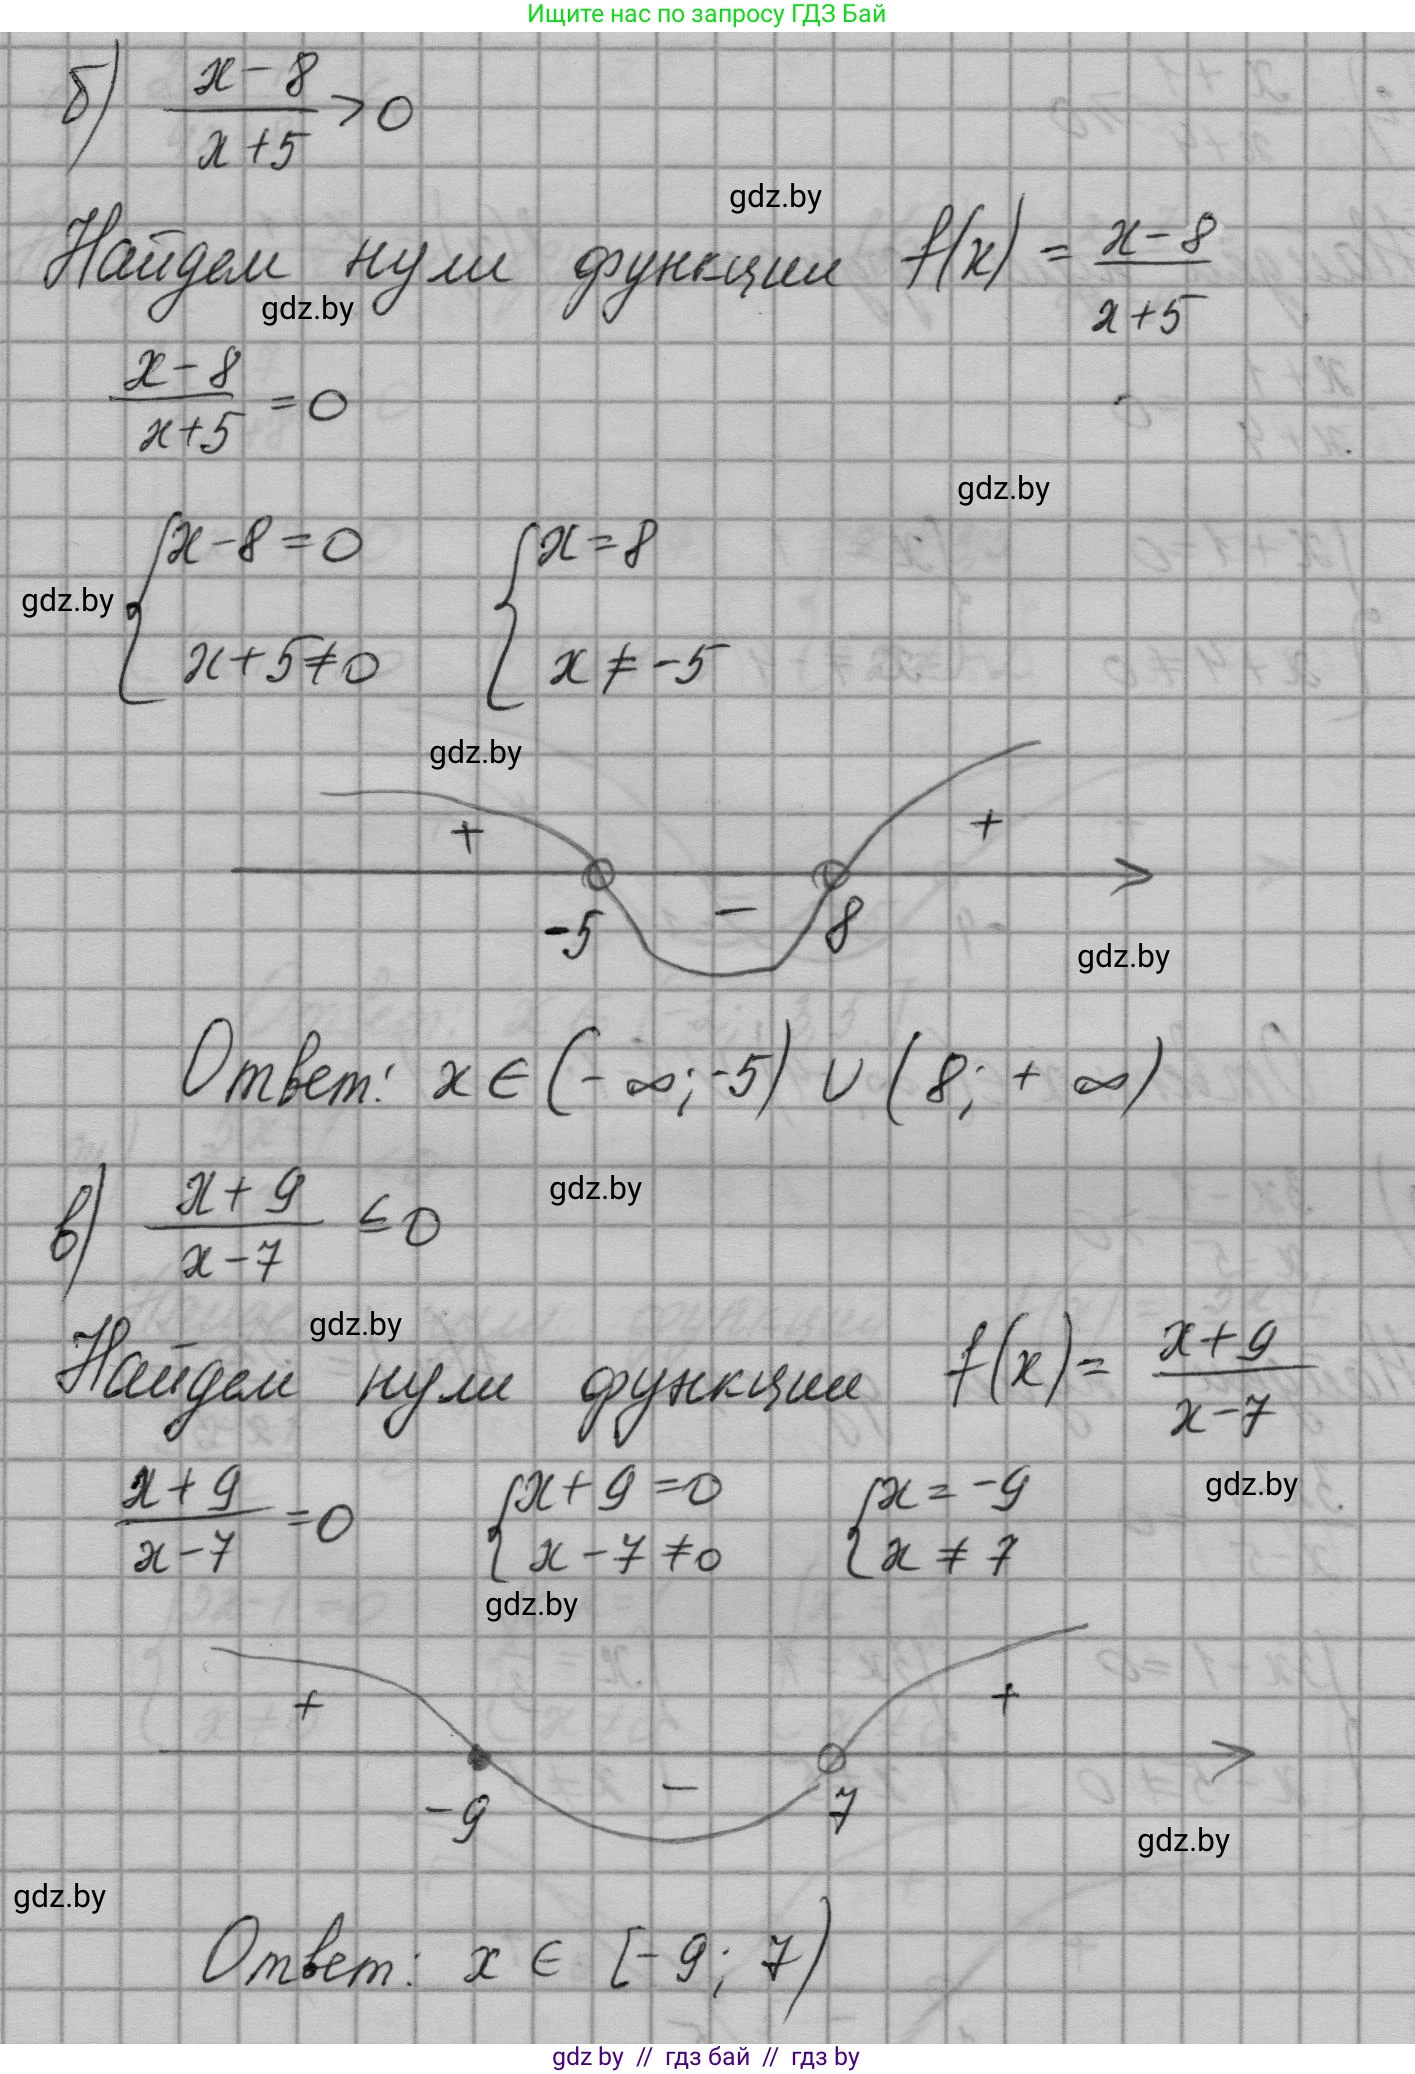 Ищите нас по запросу ГДЗ Бай
б) (x-8)/(x+5) > 0
gdz.by
Найдем нули функции f(x) = (x-8)/(x+5)
gdz.by
(x-8)/(x+5) = 0
gdz.by
{x-8=0 {x=8
gdz.by
x+5≠0 x≠-5
gdz.by
+ +
-5 - 8
gdz.by
Ответ: x ∈ (-∞; -5) ∪ (8; +∞)
gdz.by
в) (x+9)/(x-7) ≤ 0
gdz.by
Найдем нули функции f(x) = (x+9)/(x-7)
(x+9)/(x-7) = 0 {x+9=0 {x=-9
gdz.by
x-7≠0 x≠7
gdz.by
+ +
-9 - 7
gdz.by
gdz.by
Ответ: x ∈ [-9; 7)
gdz by // гдз бай // гдз by